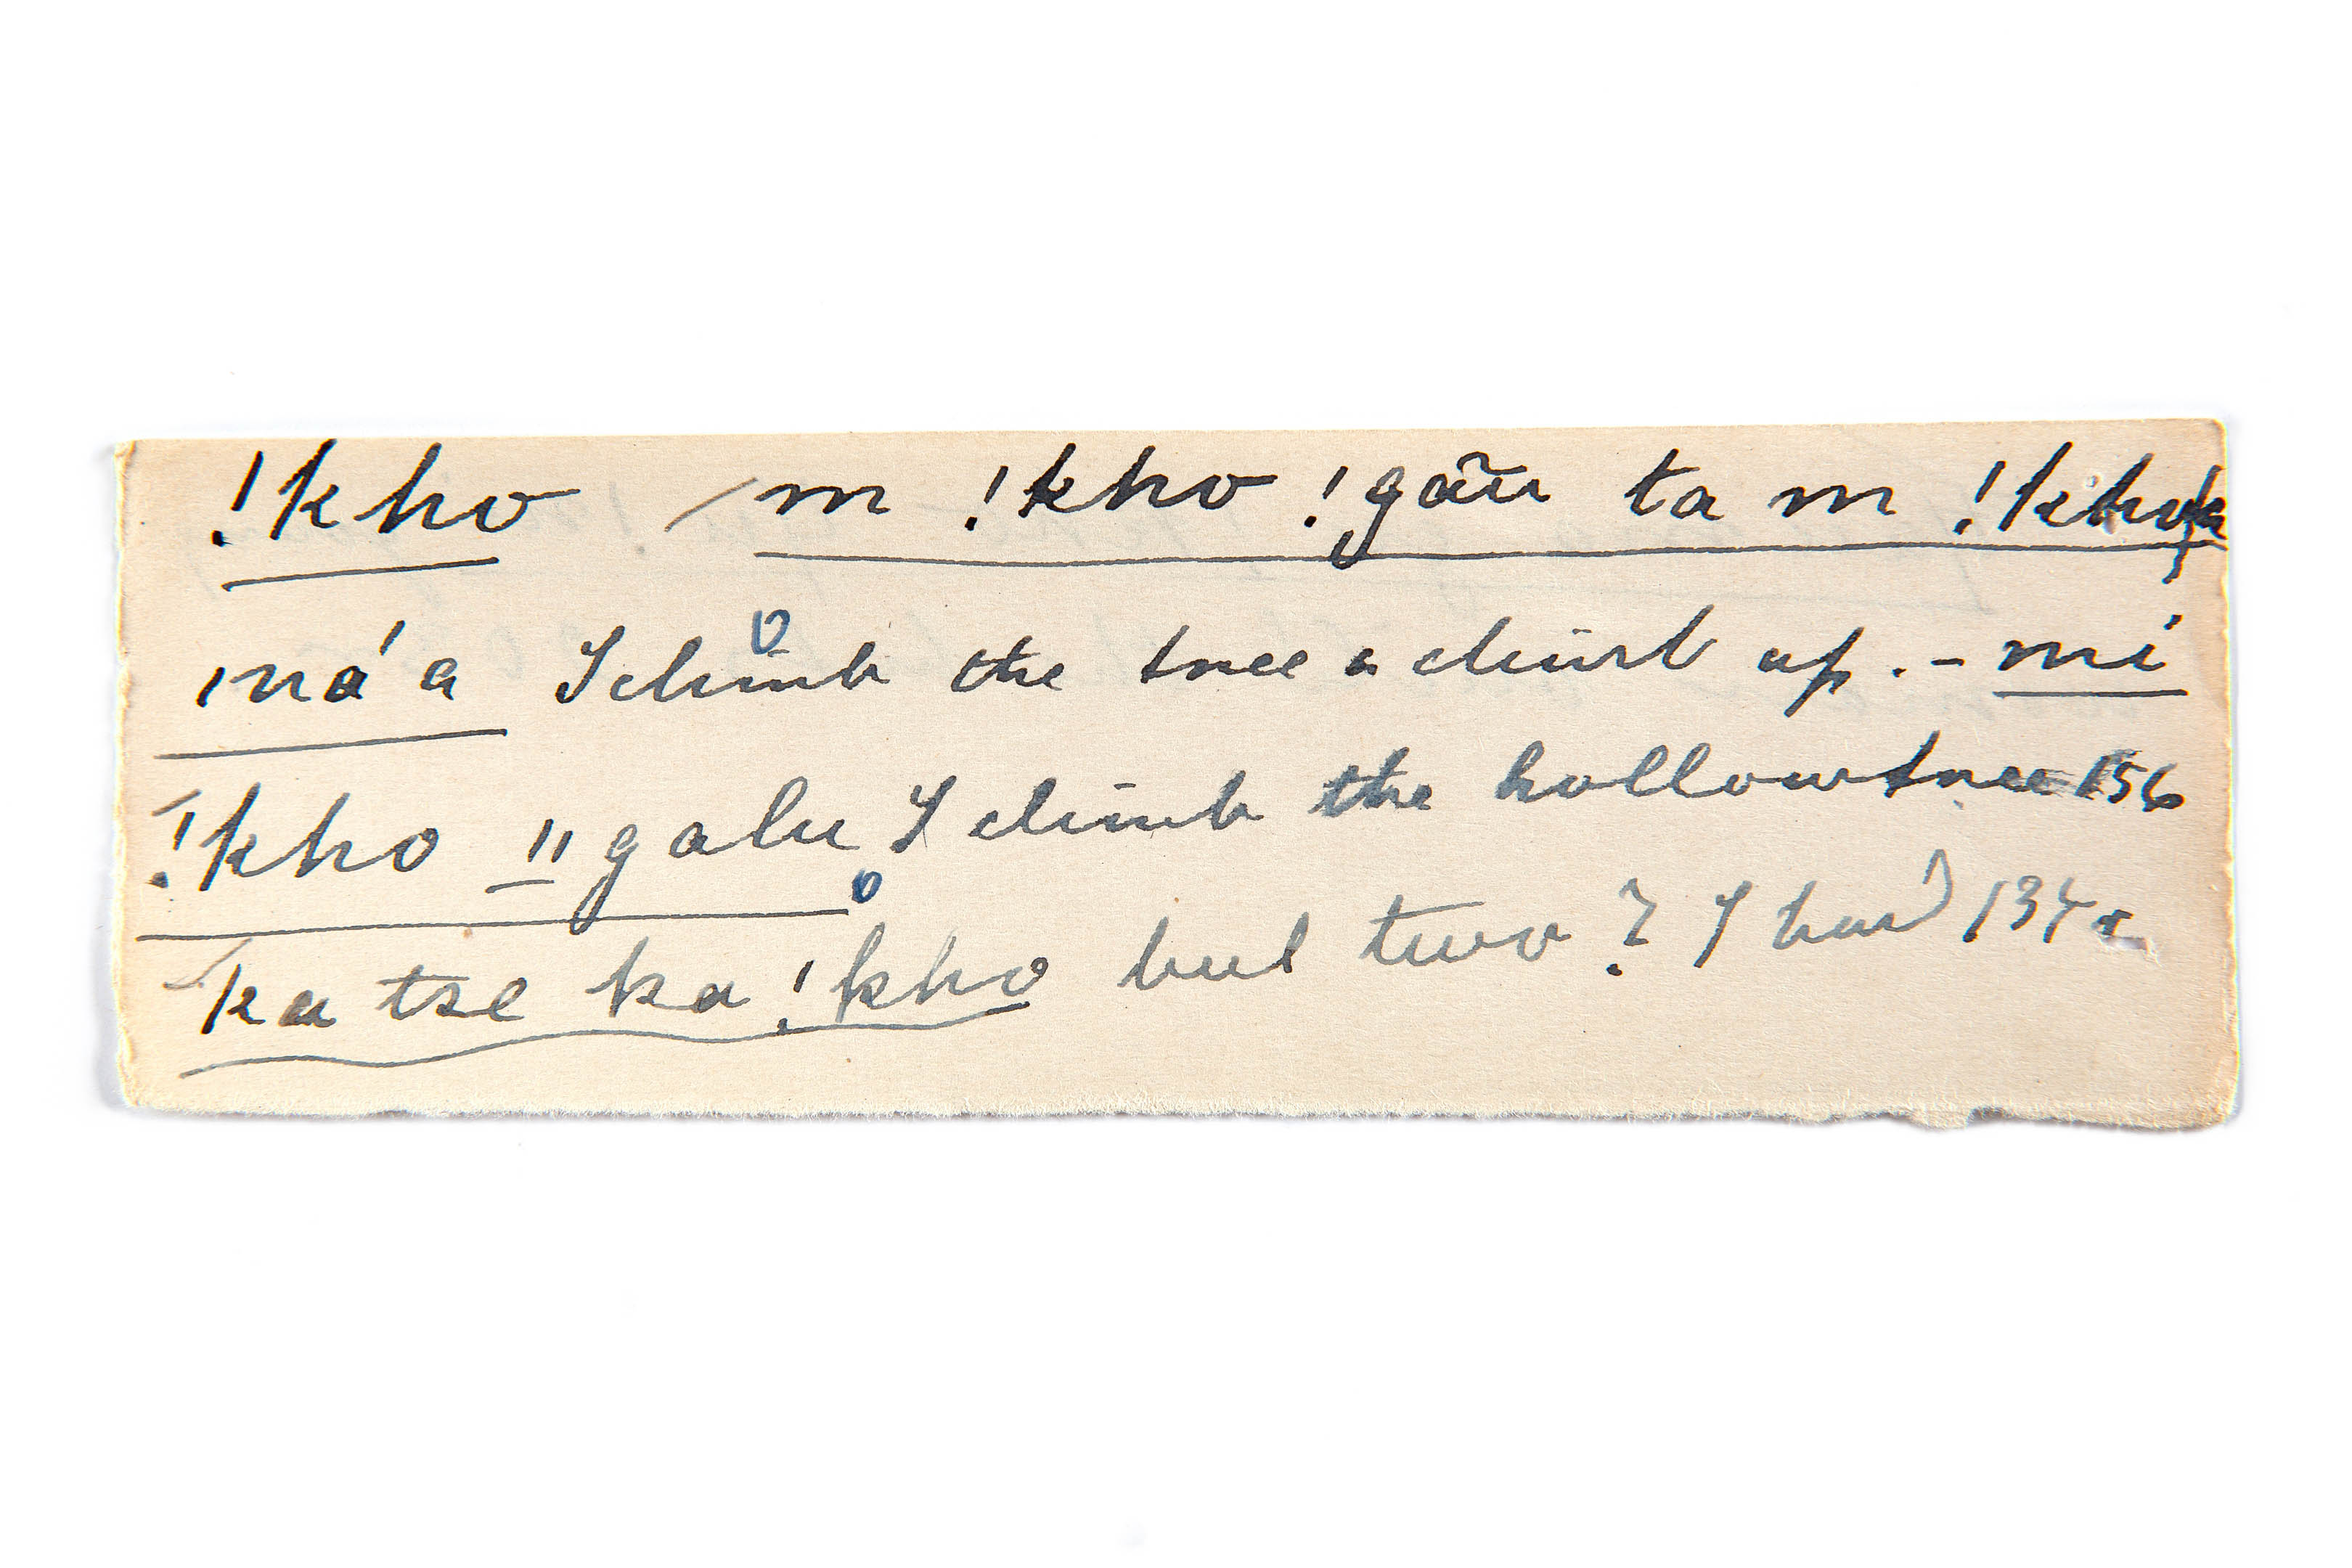 !kho m !kho !gãũ ta m !kho
ná'a I climb the tree & climb up. - mi
!kho ǁgalu I climb the hollow tree 156
ka tse ka !kho but two? I 134